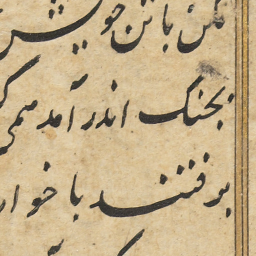 مکن با تن خویش
بجنگ اندر آمد همی
برفتند با خوار